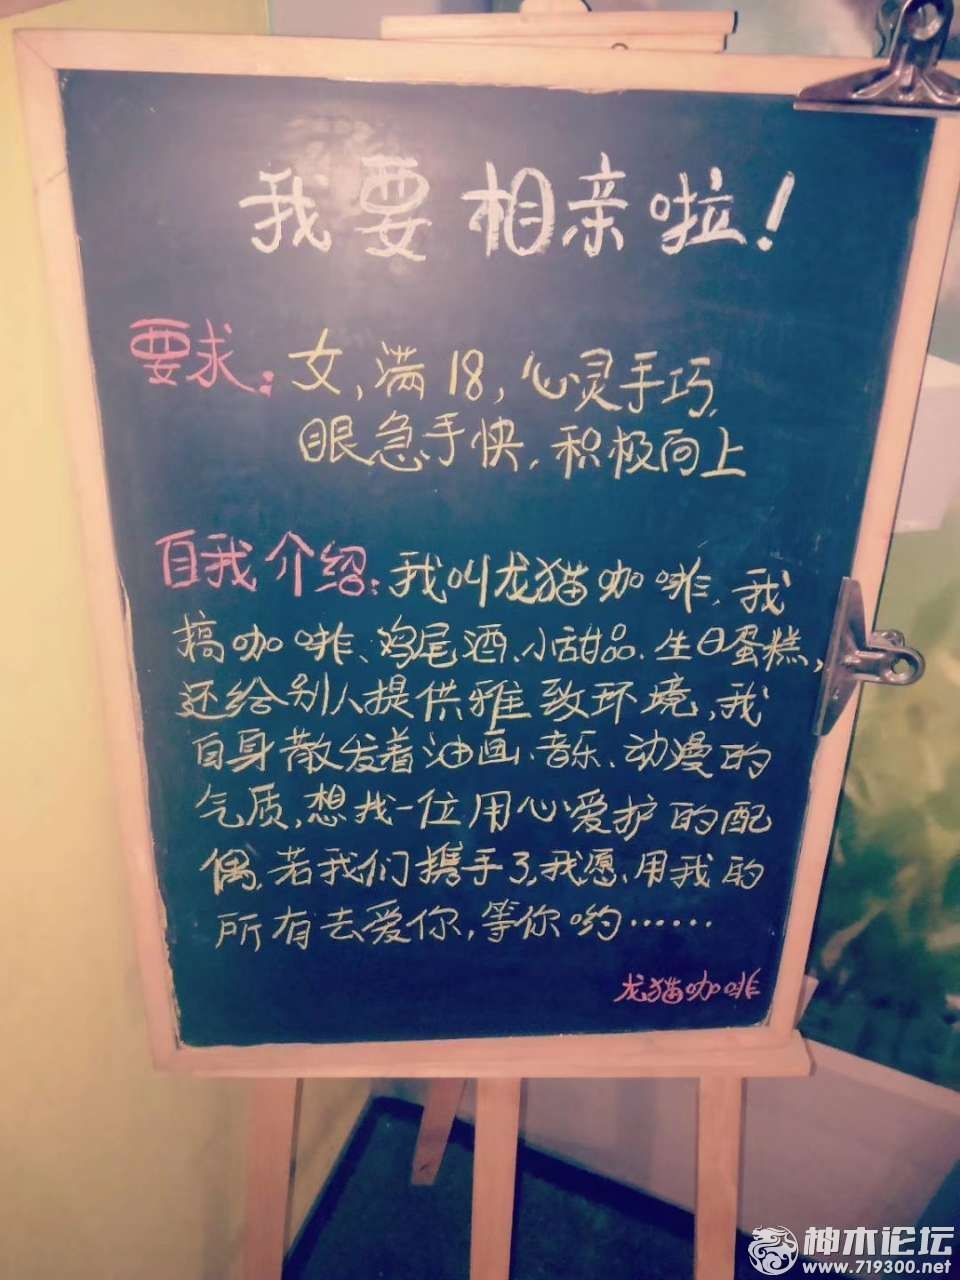 我要相亲啦!
要求: 女,满18,心灵手巧,
眼急手快,积极向上
自我介绍:我叫龙猫咖啡,我
搞咖啡、鸡尾酒、小甜品、生日蛋糕,
还给别人提供雅致环境,我
自身散发着油画、音乐、动漫的
气质,想找一位用心爱护的配
偶,若我们携手了,我愿、用我的
所有去爱你,等你哟……
龙猫咖啡
神木论坛
www.719300.net